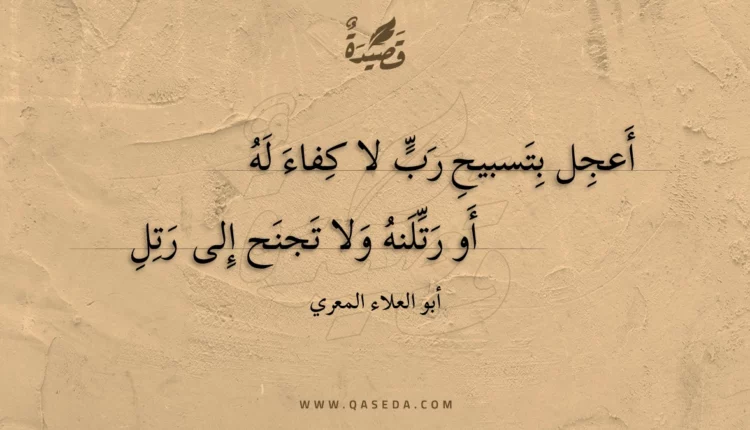 قَصِيدَةٌ
أَعجِل بِتَسبيحِ رَبٍّ لا كِفاءَ لَهُ
أَو رَتِّلَنهُ وَلا تَجنَح إِلى رَتِلِ
أبو العلاء المعري
WWW.QASEDA.COM